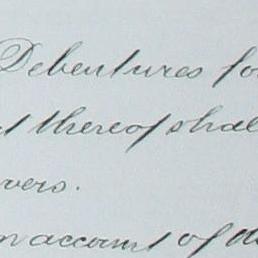 Debentures fo
t thereof shal
vers.
n account of d